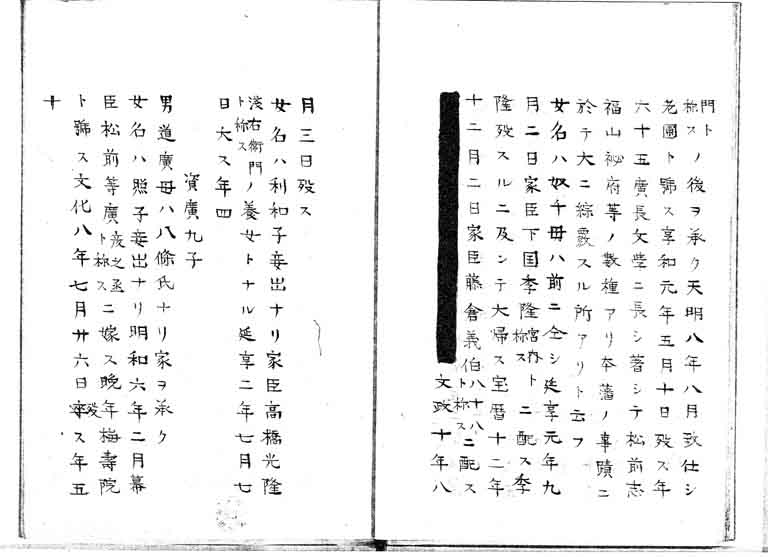 門ト
称スノ後ヲ承ク天明八年八月致仕シ
老圃ト號ス享和元年五月十日歿ス年
六十五廣長文學ニ長シ著シテ松前志
福山祕府等ノ數種アリ本藩ノ事蹟ニ
於テ大ニ綜覈スル所アリト云フ
女名ハ奴千母ハ前ニ仝シ延享元年九
月二日家臣下国季隆宮内ト称スニ配ス季
隆歿スルニ及ンテ大歸ス宝暦十二年
十二月二日家臣藤倉義伯八十八ト称スニ配ス
文政十年八
月三日歿ス
女名ハ利和子妾出ナリ家臣高橋光隆
浅右衛門ト称スノ養女トナル延享二年七月七
日大ス年四
資廣九子
男道廣母ハ八條氏ナリ家ヲ承ク
女名ハ照子妾出ナリ明和六年二月幕
臣松前等廣ト称スニ嫁ス晩年梅壽院
ト號ス文化八年七月廿六日歿ス年五
十